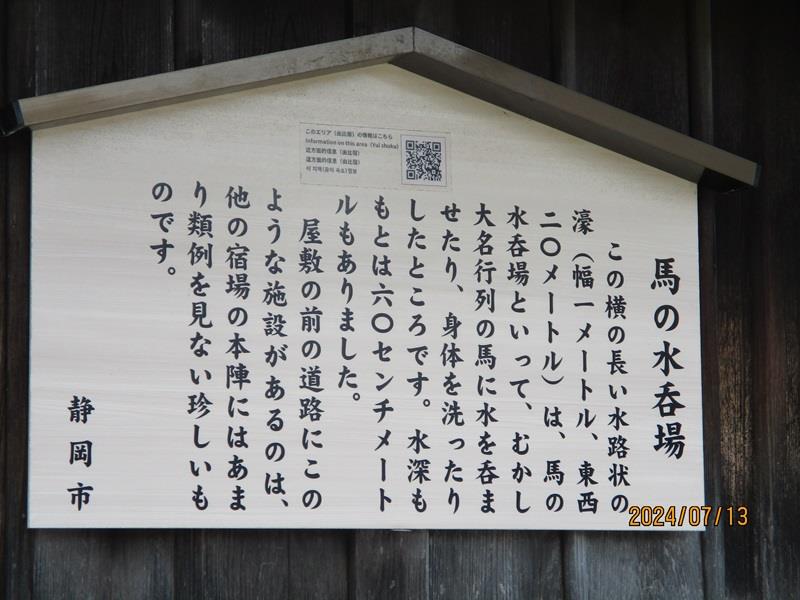 このエリア(由比宿)の情報はこちら
Information on this area (Yui shuku)
이 지역(유이 숙소)정보
馬の水呑場
この横の長い水路状の
濠(幅一メートル、東西
二〇メートル)は、馬の
水呑場といって、むかし
大名行列の馬に水を呑ま
せたり、身体を洗ったり
したところです。水深も
もとは六〇センチメート
ルもありました。
屋敷の前の道路にこの
ような施設があるのは、
他の宿場の本陣にはあま
り類例を見ない珍しいも
のです。
静岡市
2024/07/13